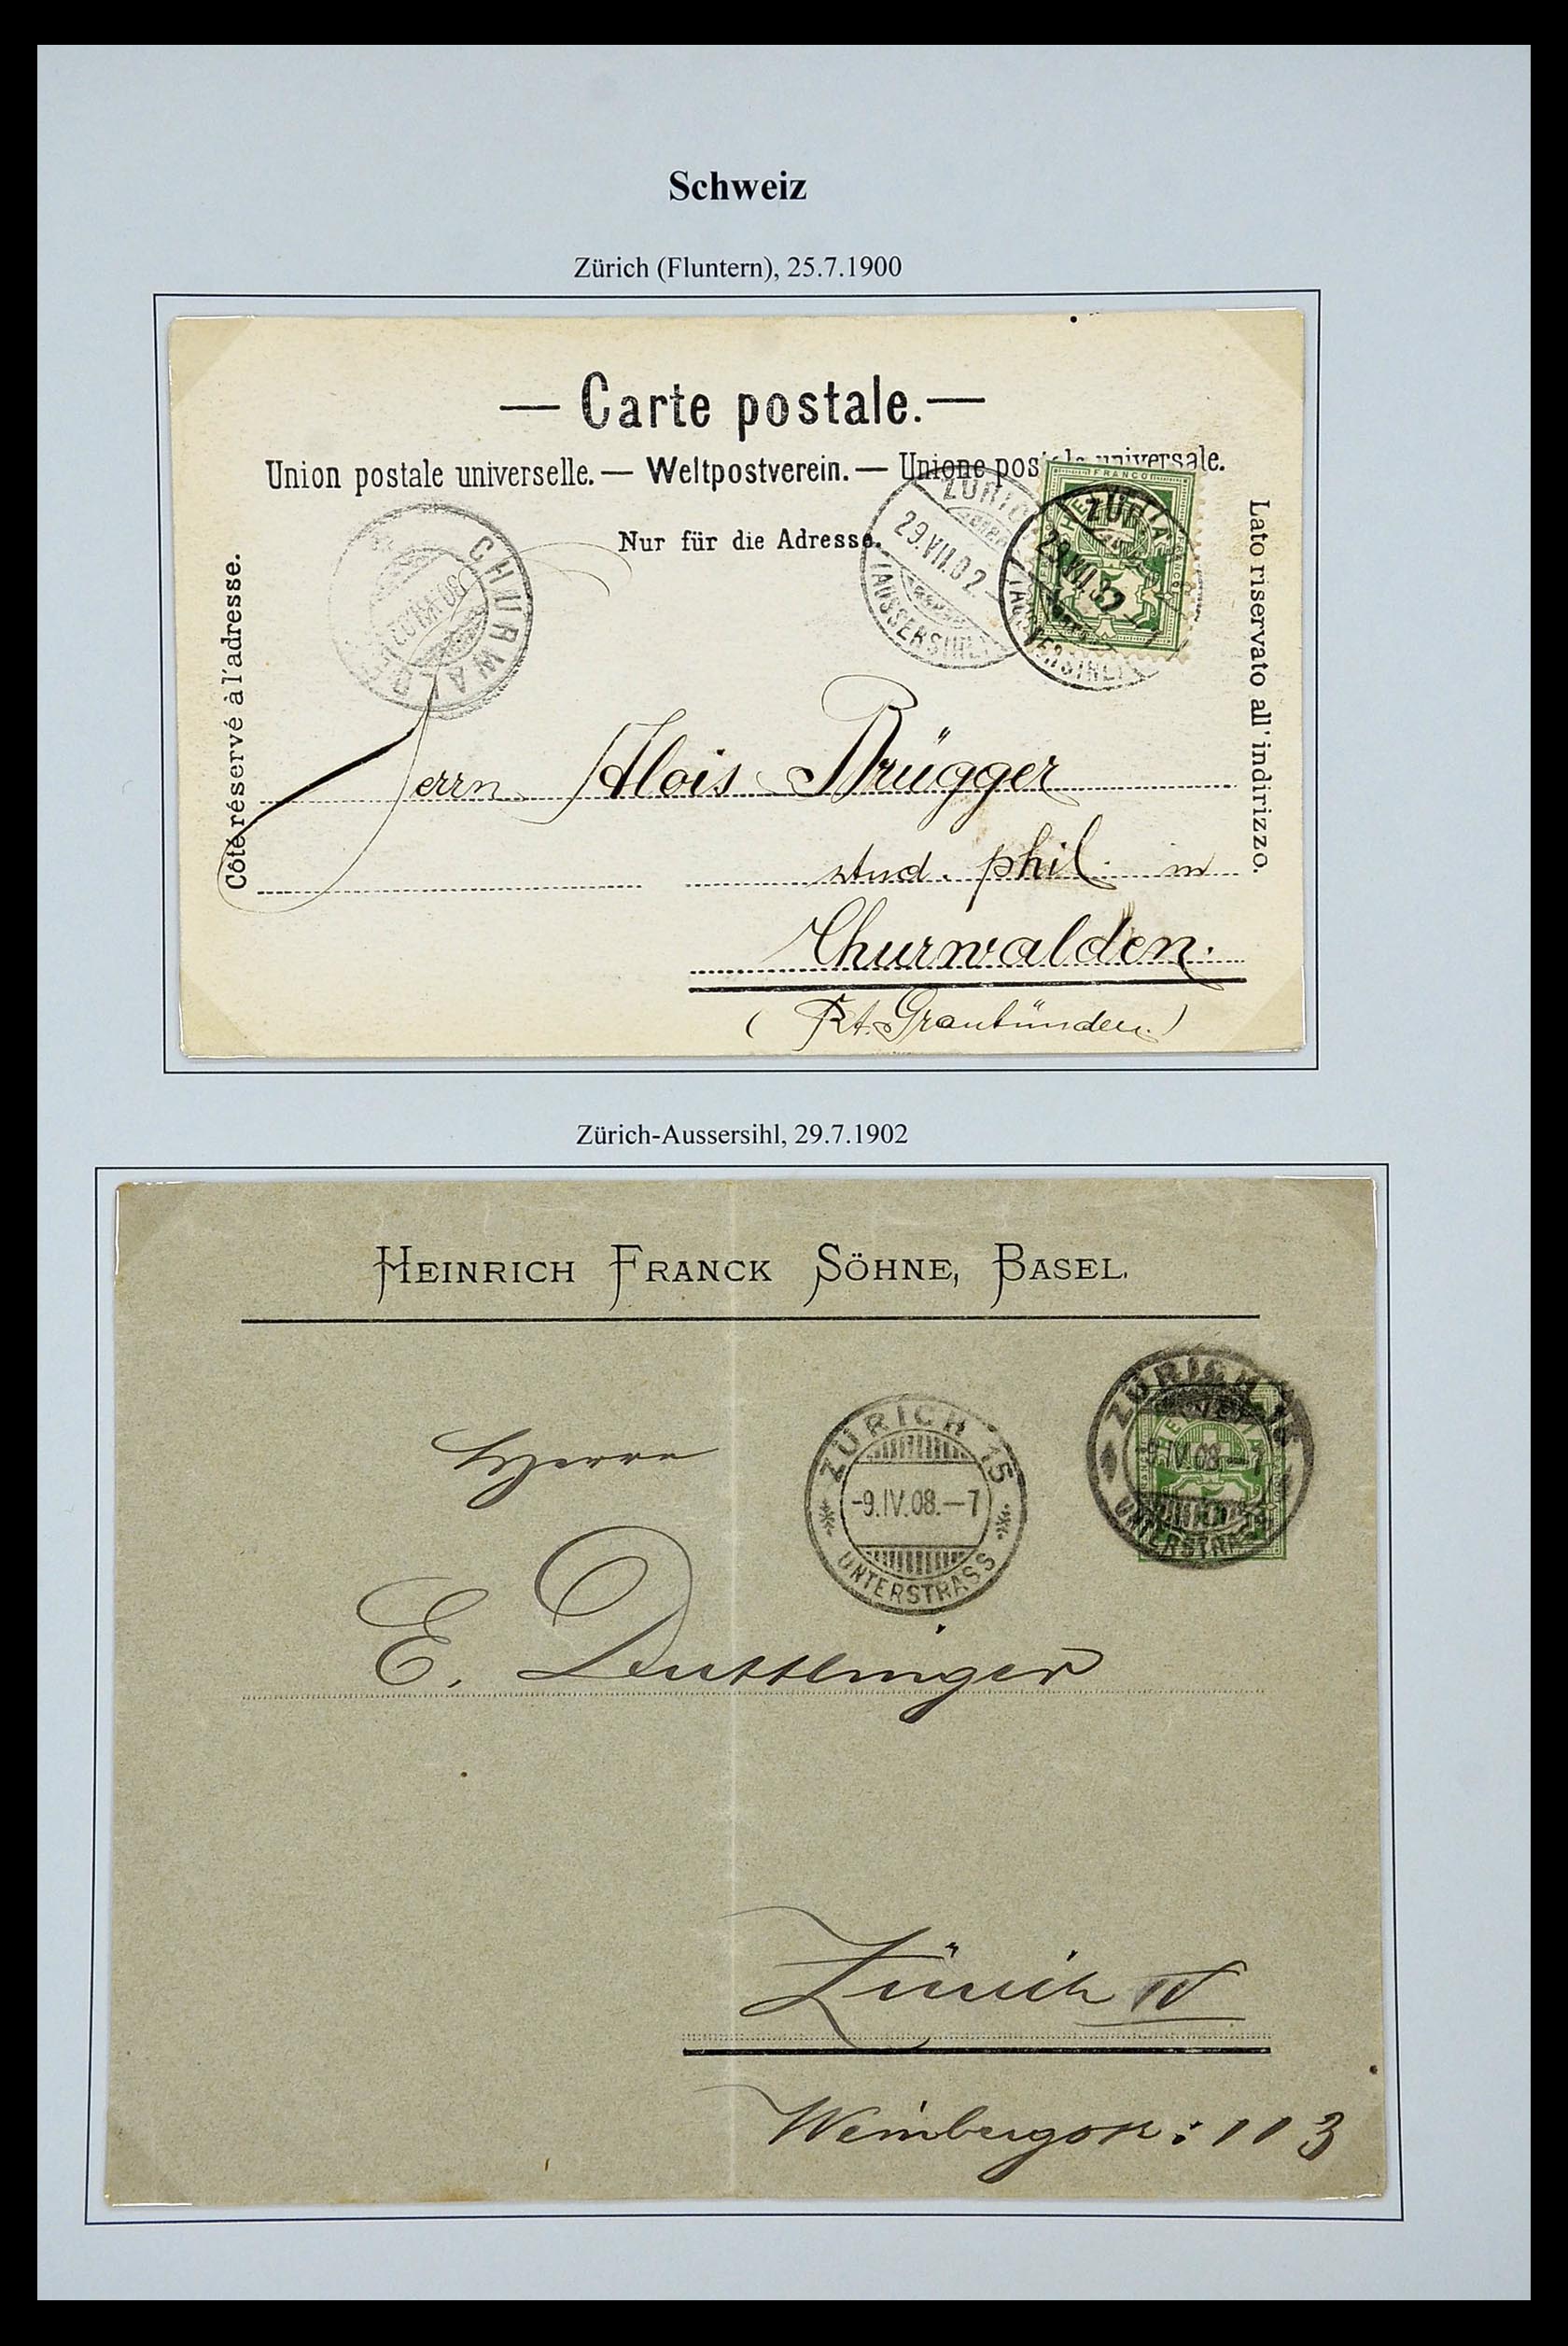 Schweiz
Zürich (Fluntern), 25.7.1900
— Carte postale. —
Union postale universelle. — Weltpostverein. — Unione postale universale.
Nur für die Adresse.
Côté réservé à l'adresse.
Lato riservato all'indirizzo.
CHURWALDEN
ZÜRICH
29.VII.02
(AUSSERSIHL)
FRANCO
HELVETIA
5
ZÜRICH
29.VII.02
(AUSSERSIHL)
Herrn Alois Brügger
stud. phil. in
Churwalden.
(Kt. Graubünden.)
Zürich-Aussersihl, 29.7.1902
HEINRICH FRANCK SÖHNE, BASEL.
ZÜRICH 15
-9.IV.08.—7
UNTERSTRASS
ZÜRICH 15
-9.IV.08.—7
UNTERSTRASS
HELVETIA
5
Herrn
E. Duttlinger
Zürich IV
Weinbergstr: 113